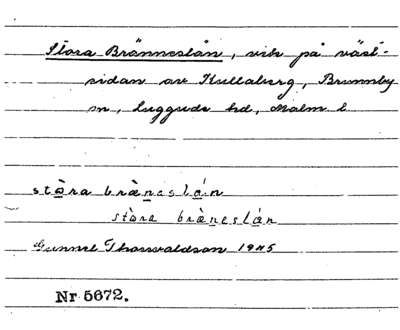 Stora Bränneslån, vik på väst-
sidan av Kullaberg, Brunnby
sn, Luggude hd, Malm l
stò̱ra bræ̀ṉesḻá̱n
stò̱ra bræ̀ṉesḻá̱n
Gunnel Thorvaldson 1945
Nr 5672.